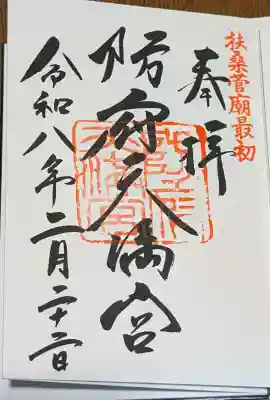 扶桑菅廟最初
奉拝
防府天満宮
令和八年二月二十二日